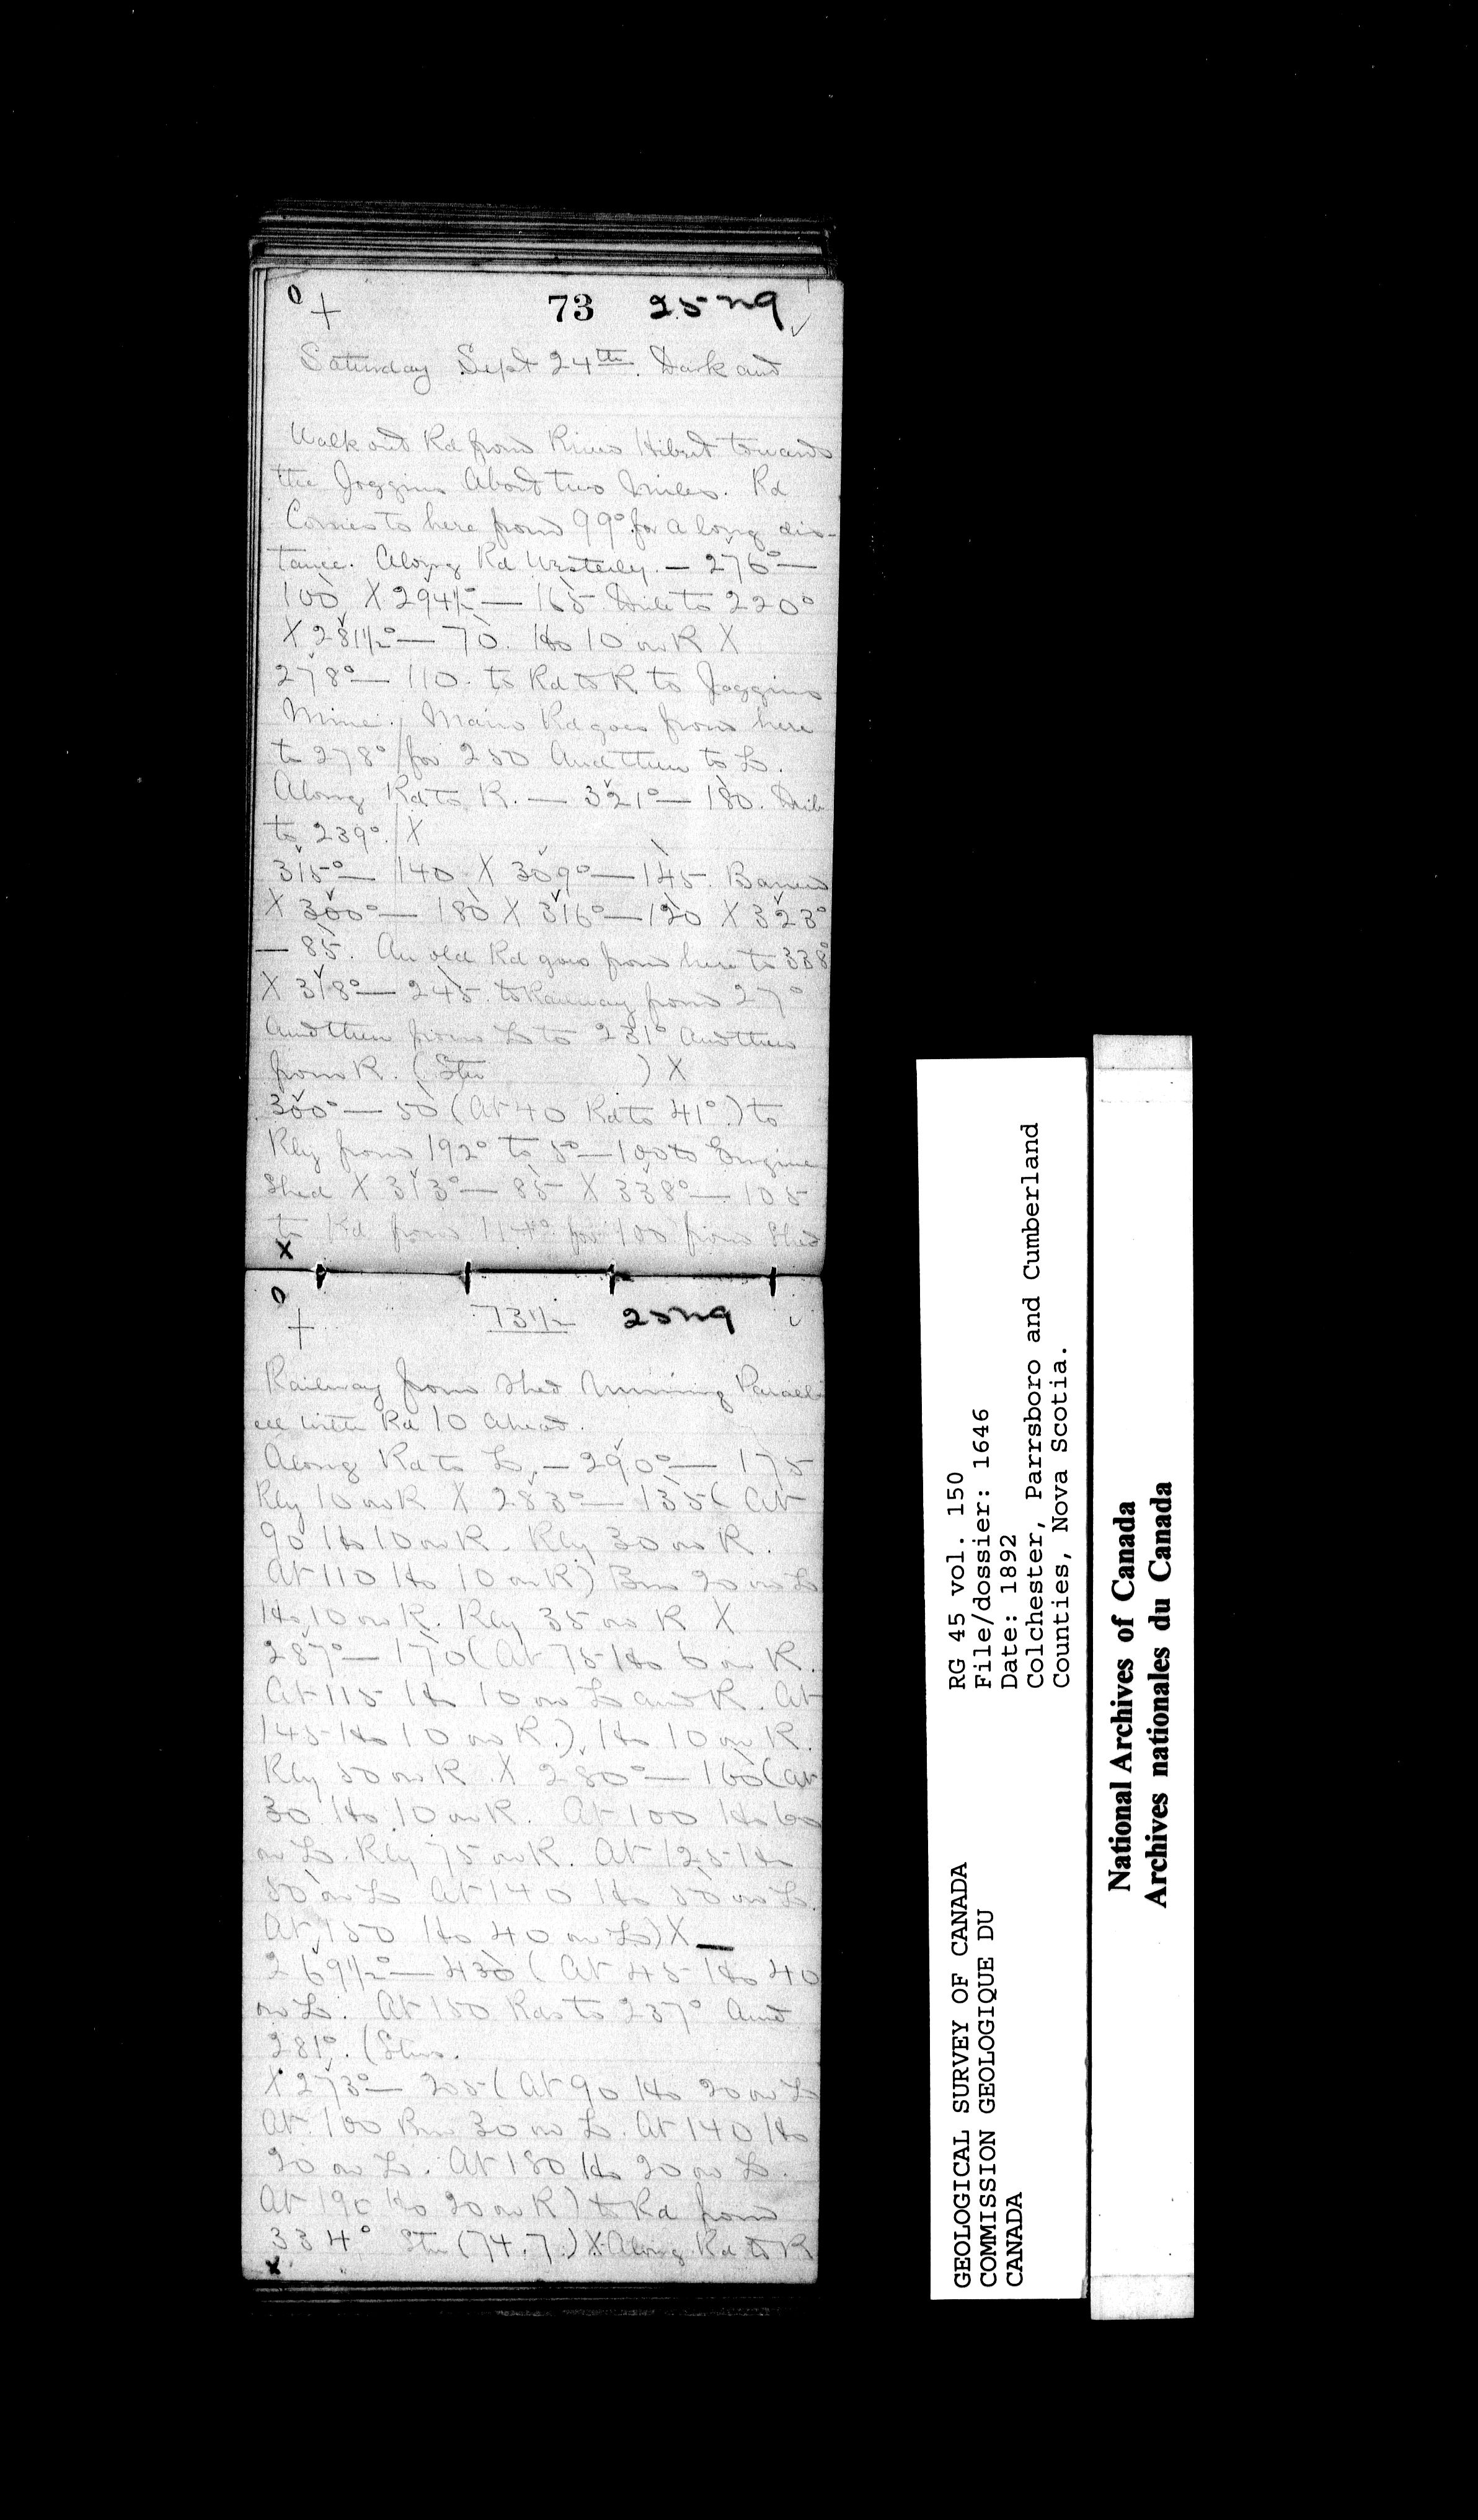 73 25 ng
Saturday Sept 24th. Dark and
Walk out Rd from River Hibert towards
the Joggins About two miles. Rd
Comes to here from 99° for a long dis-
tance. Along Rd Westerly. — 276° —
100 X 294 1/2° — 165. to 220°
X 281 1/2° — 70. Ho 10 on R X
278° — 110. to Rd to R to Joggins
Mine. Main Rd goes from here
to 278° for 250 And then to L.
Along Rd to R. — 321° — 180.
to 239°. X
315° — 140 X 309° — 145. Barren
X 300° — 180 X 316° — 120 X 323°
— 85. An old Rd goes from here to 338°
X 318° — 245. to Railway from 27°
And then from L to 231° And then
from R. (Stn ) X
300° — 50 (At 40 Rd to 41°.) to
Rly from 192° to 5° — 100 to Engine
Shed X 313° — 85 X 338° — 105
to Rd from 114° for 100 from Shed
X
73 1/2 25 ng
Railway from Shed Running Parall-
el with Rd 10 Ahead.
Along Rd to L. — 290° — 175
Rly 10 on R X 283° — 135 (At
90 Ho 10 on R. Rly 30 on R.
At 110 Ho 10 on R) Brn 20 on L
Ho 10 on R. Rly 35 on R X
287° — 170 (At 75 Ho 6 on R.
At 115 Ho 10 on L and R. At
145 Ho 10 on R.) Ho 10 on R.
Rly 50 on R. X 280° — 160 (At
30 Ho 10 on R. At 100 Ho 60
on L. Rly 75 on R. At 125 Ho
50 on L At 140 Ho 50 on L.
At 150 Ho 40 on L) X —
269 1/2° — 430 (At 45 Ho 40
on L. At 150 Rds to 237° And
281°. (Stn.
X 273° — 205 (At 90 Ho 20 on L
At 100 Brn 30 on L. At 140 Ho
20 on L. At 180 Ho 20 on L.
At 190 Ho 20 on R) to Rd from
334° Stn (74.7.) X Along Rd to R
X
GEOLOGICAL SURVEY OF CANADA
COMMISSION GEOLOGIQUE DU
CANADA
RG 45 vol. 150
File/dossier: 1646
Date: 1892
Colchester, Parrsboro and Cumberland
Counties, Nova Scotia.
National Archives of Canada
Archives nationales du Canada